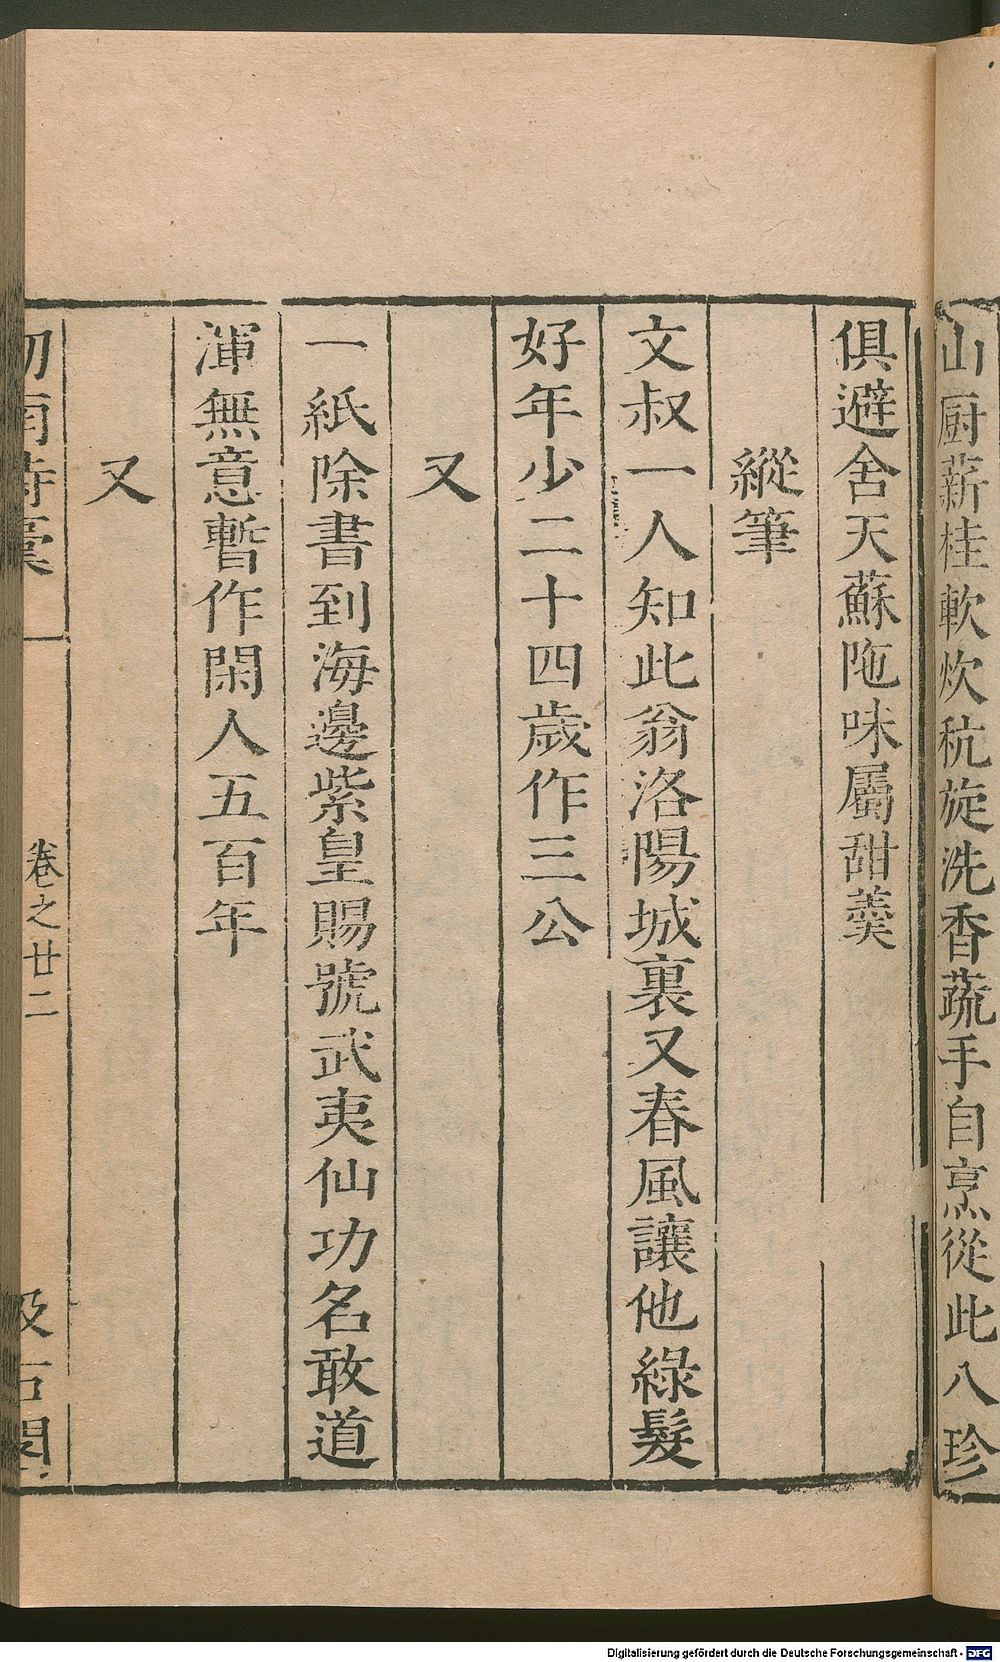 山厨薪桂軟炊秔旋洗香蔬手自烹從此八珍
俱避舍天蘇陁味屬甜羹
縱筆
文叔一人知此翁洛陽城裏又春風讓他綠髮
好年少二十四歲作三公
又
一紙除書到海邊紫皇賜號武夷仙功名敢道
渾無意暫作閑人五百年
又
劒南詩稾
卷之廿二
汲古閣
Digitalisierung gefördert durch die Deutsche Forschungsgemeinschaft - DFG